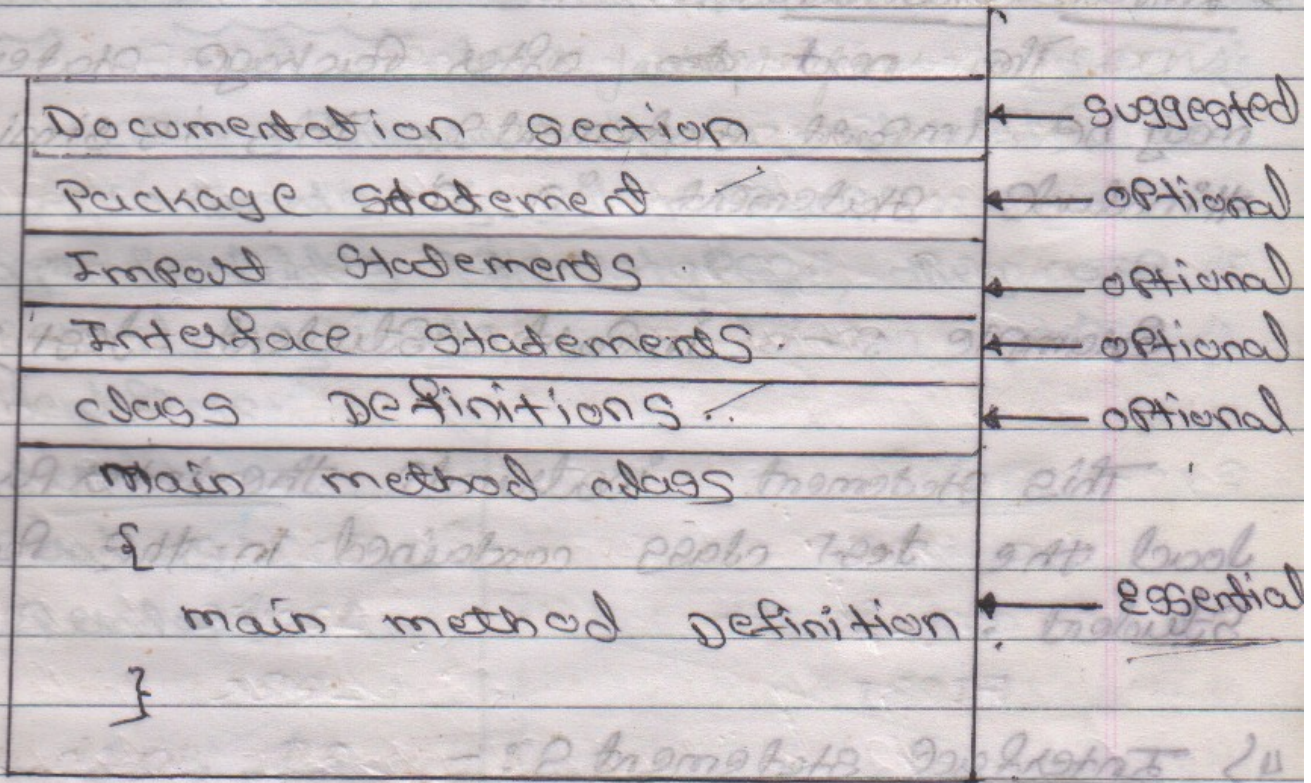 Documentation section ← suggested
Package statement ← optional
Import statements. ← optional
Interface statements. ← optional
class Definitions.. ← optional
main method class
{
main method Definition ← essential
}